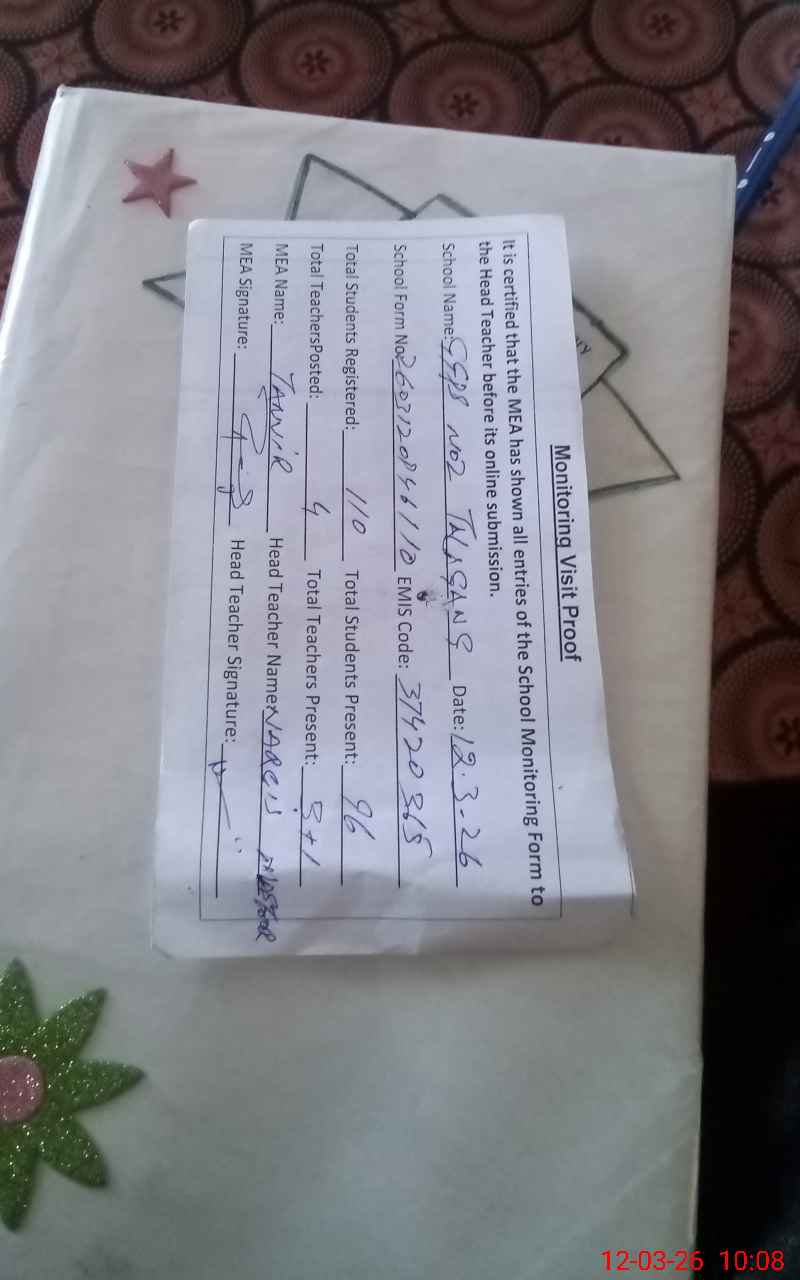 Monitoring Visit Proof
It is certified that the MEA has shown all entries of the School Monitoring Form to
the Head Teacher before its online submission.
School Name: GGPS NO2 TALAGANG Date: 12.3-26
School Form No: 2603120846110 EMIS Code: 37420365
Total Students Registered: 110 Total Students Present: 96
Total TeachersPosted: 4 Total Teachers Present: 3+1
MEA Name: TANVIR Head Teacher Name: NARGIS
MEA Signature: Head Teacher Signature:
12-03-26 10:08